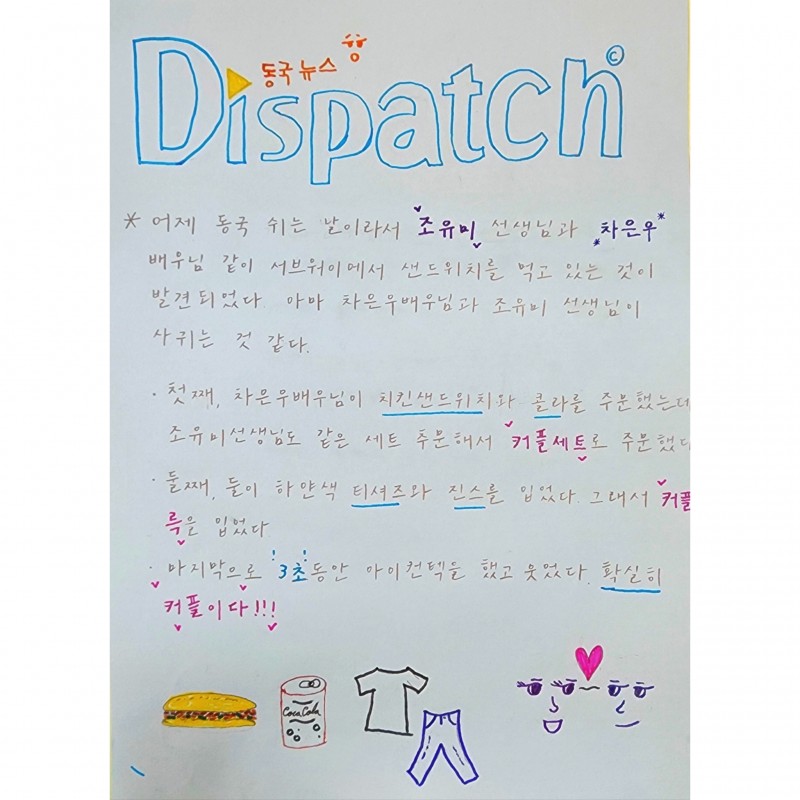 동국 뉴스
Dispatch ©
* 어제 동국 쉬는 날이라서 조유미 선생님과 *차은우*
배우님 같이 서브워이에서 샌드위치를 먹고 있는 것이
발견되었다. 아마 차은우배우님과 조유미 선생님이
사귀는 것 같다.
· 첫째, 차은우배우님이 치킨샌드위치와 콜라를 주문했는데
조유미선생님도 같은 세트 주문해서 커플세트로 주문했다
· 둘째, 둘이 하얀색 티셔즈와 진스를 입었다. 그래서 커플
륵을 입었다
· 마지막으로 3초동안 아이컨텍을 했고 웃었다. 확실히
커플이다!!!
CocaCola